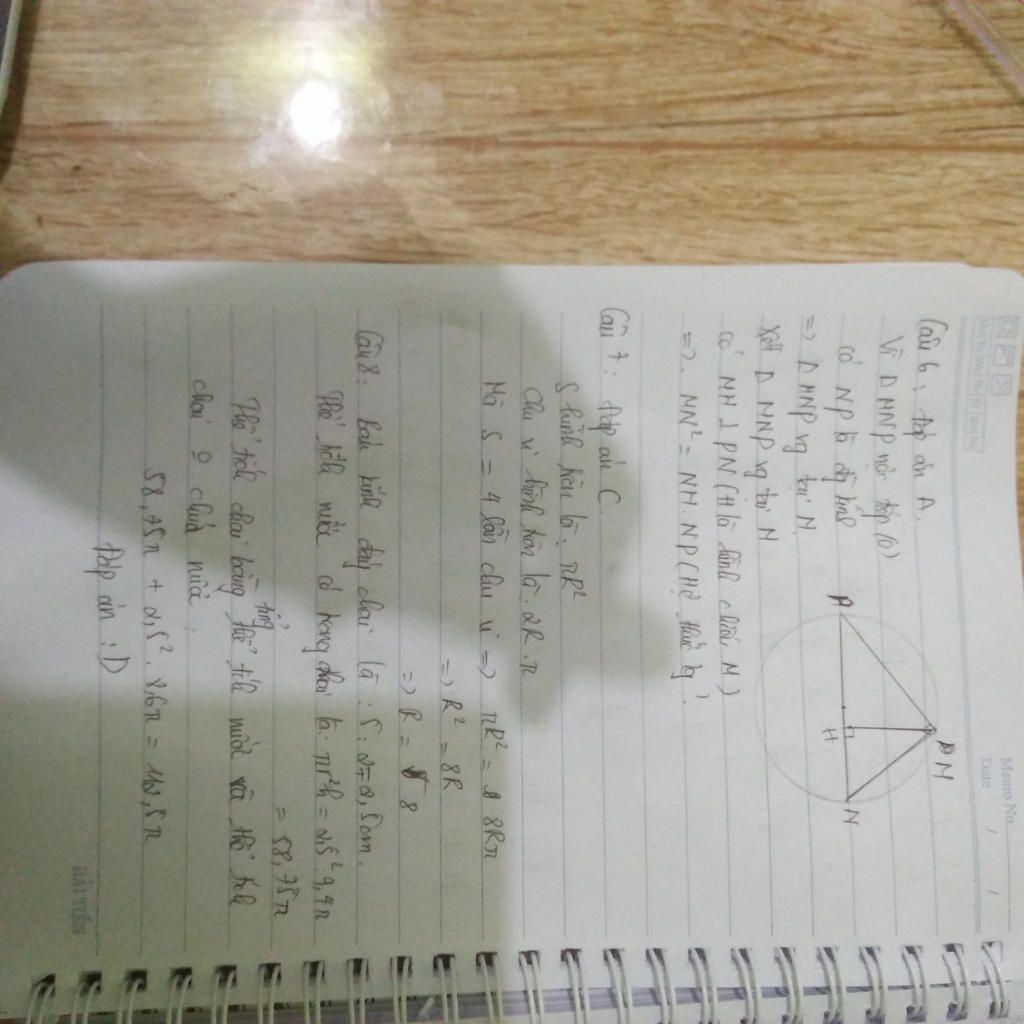 Memo No. / /
Date
Câu 6: Đáp án A.
Vì Δ MNP nội tiếp (O)
có NP là đg kính
=> Δ MNP vg tại M
Xét Δ MNP vg tại M
có MH ⊥ PN (H là hình chiếu M)
=> MN² = NH. NP (Hệ thức lg).
P
H
N
M
Câu 7: Đáp án C
S hình tròn là: πR²
Chu vi hình tròn là: 2R.π
Mà S = 4 lần chu vi => πR² = 8Rπ
=> R² = 8R
=> R = 8
Câu 8: bán kính đáy chai là: 5:2=2,5cm.
Thể tích nước ở trong chai là: πr²h = 2,5².9,4π
= 58,75π
Thể tích chai bằng tổng thể tích nước và thể tích
chai 0 chứa nước.
58,75π + 2,5². 8,6π = 112,5π
Đáp án: D
HẢI TIẾN